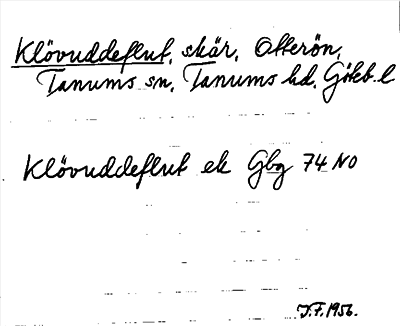 Klövuddeflut, skär, Otterön,
Tanums sn, Tanums hd, Göteb. l
Klövuddeflut ek Gbg 74 NO
J.F. 1956.